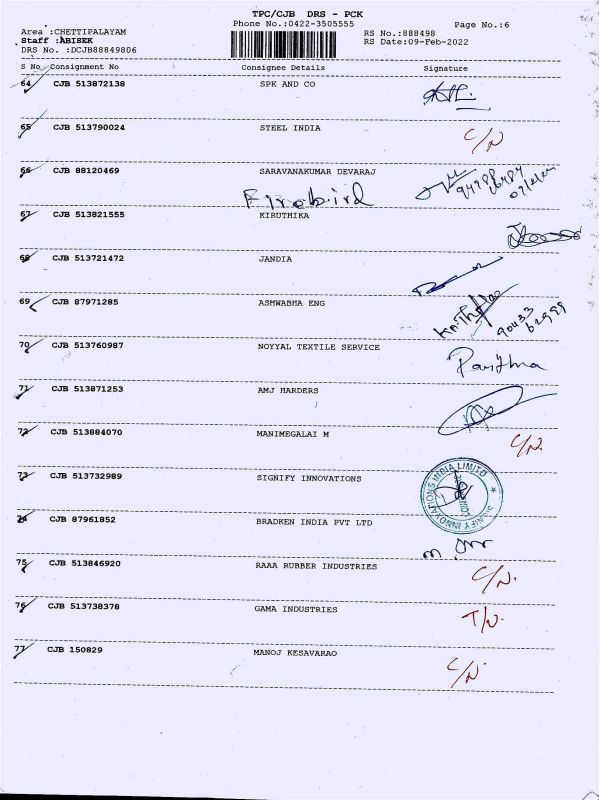 TPC/CJB DRS - PCK
Phone No.:0422-3505555 Page No.:6
Area :CHETTIPALAYAM RS No.:888498
Staff :ABISEK RS Date:09-Feb-2022
DRS No. :DCJB88849806
S No Consignment No Consignee Details Signature
64 CJB 513872138 SPK AND CO
65 CJB 513790024 STEEL INDIA C/N
66 CJB 88120469 SARAVANAKUMAR DEVARAJ
Firebird
67 CJB 513821555 KIRUTHIKA
68 CJB 513721472 JANDIA
69 CJB 87971285 ASHWABHA ENG
90433
62999
70 CJB 513760987 NOYYAL TEXTILE SERVICE Pavithra
71 CJB 513871253 AMJ HARDERS
72 CJB 513884070 MANIMEGALAI M C/N
73 CJB 513732989 SIGNIFY INNOVATIONS
SIGNIFY INNOVATIONS INDIA LIMITED
74 CJB 87961852 BRADKEN INDIA PVT LTD
75 CJB 513846920 RAAA RUBBER INDUSTRIES C/N.
76 CJB 513738378 GAMA INDUSTRIES T/N.
77 CJB 150829 MANOJ KESAVARAO C/N.